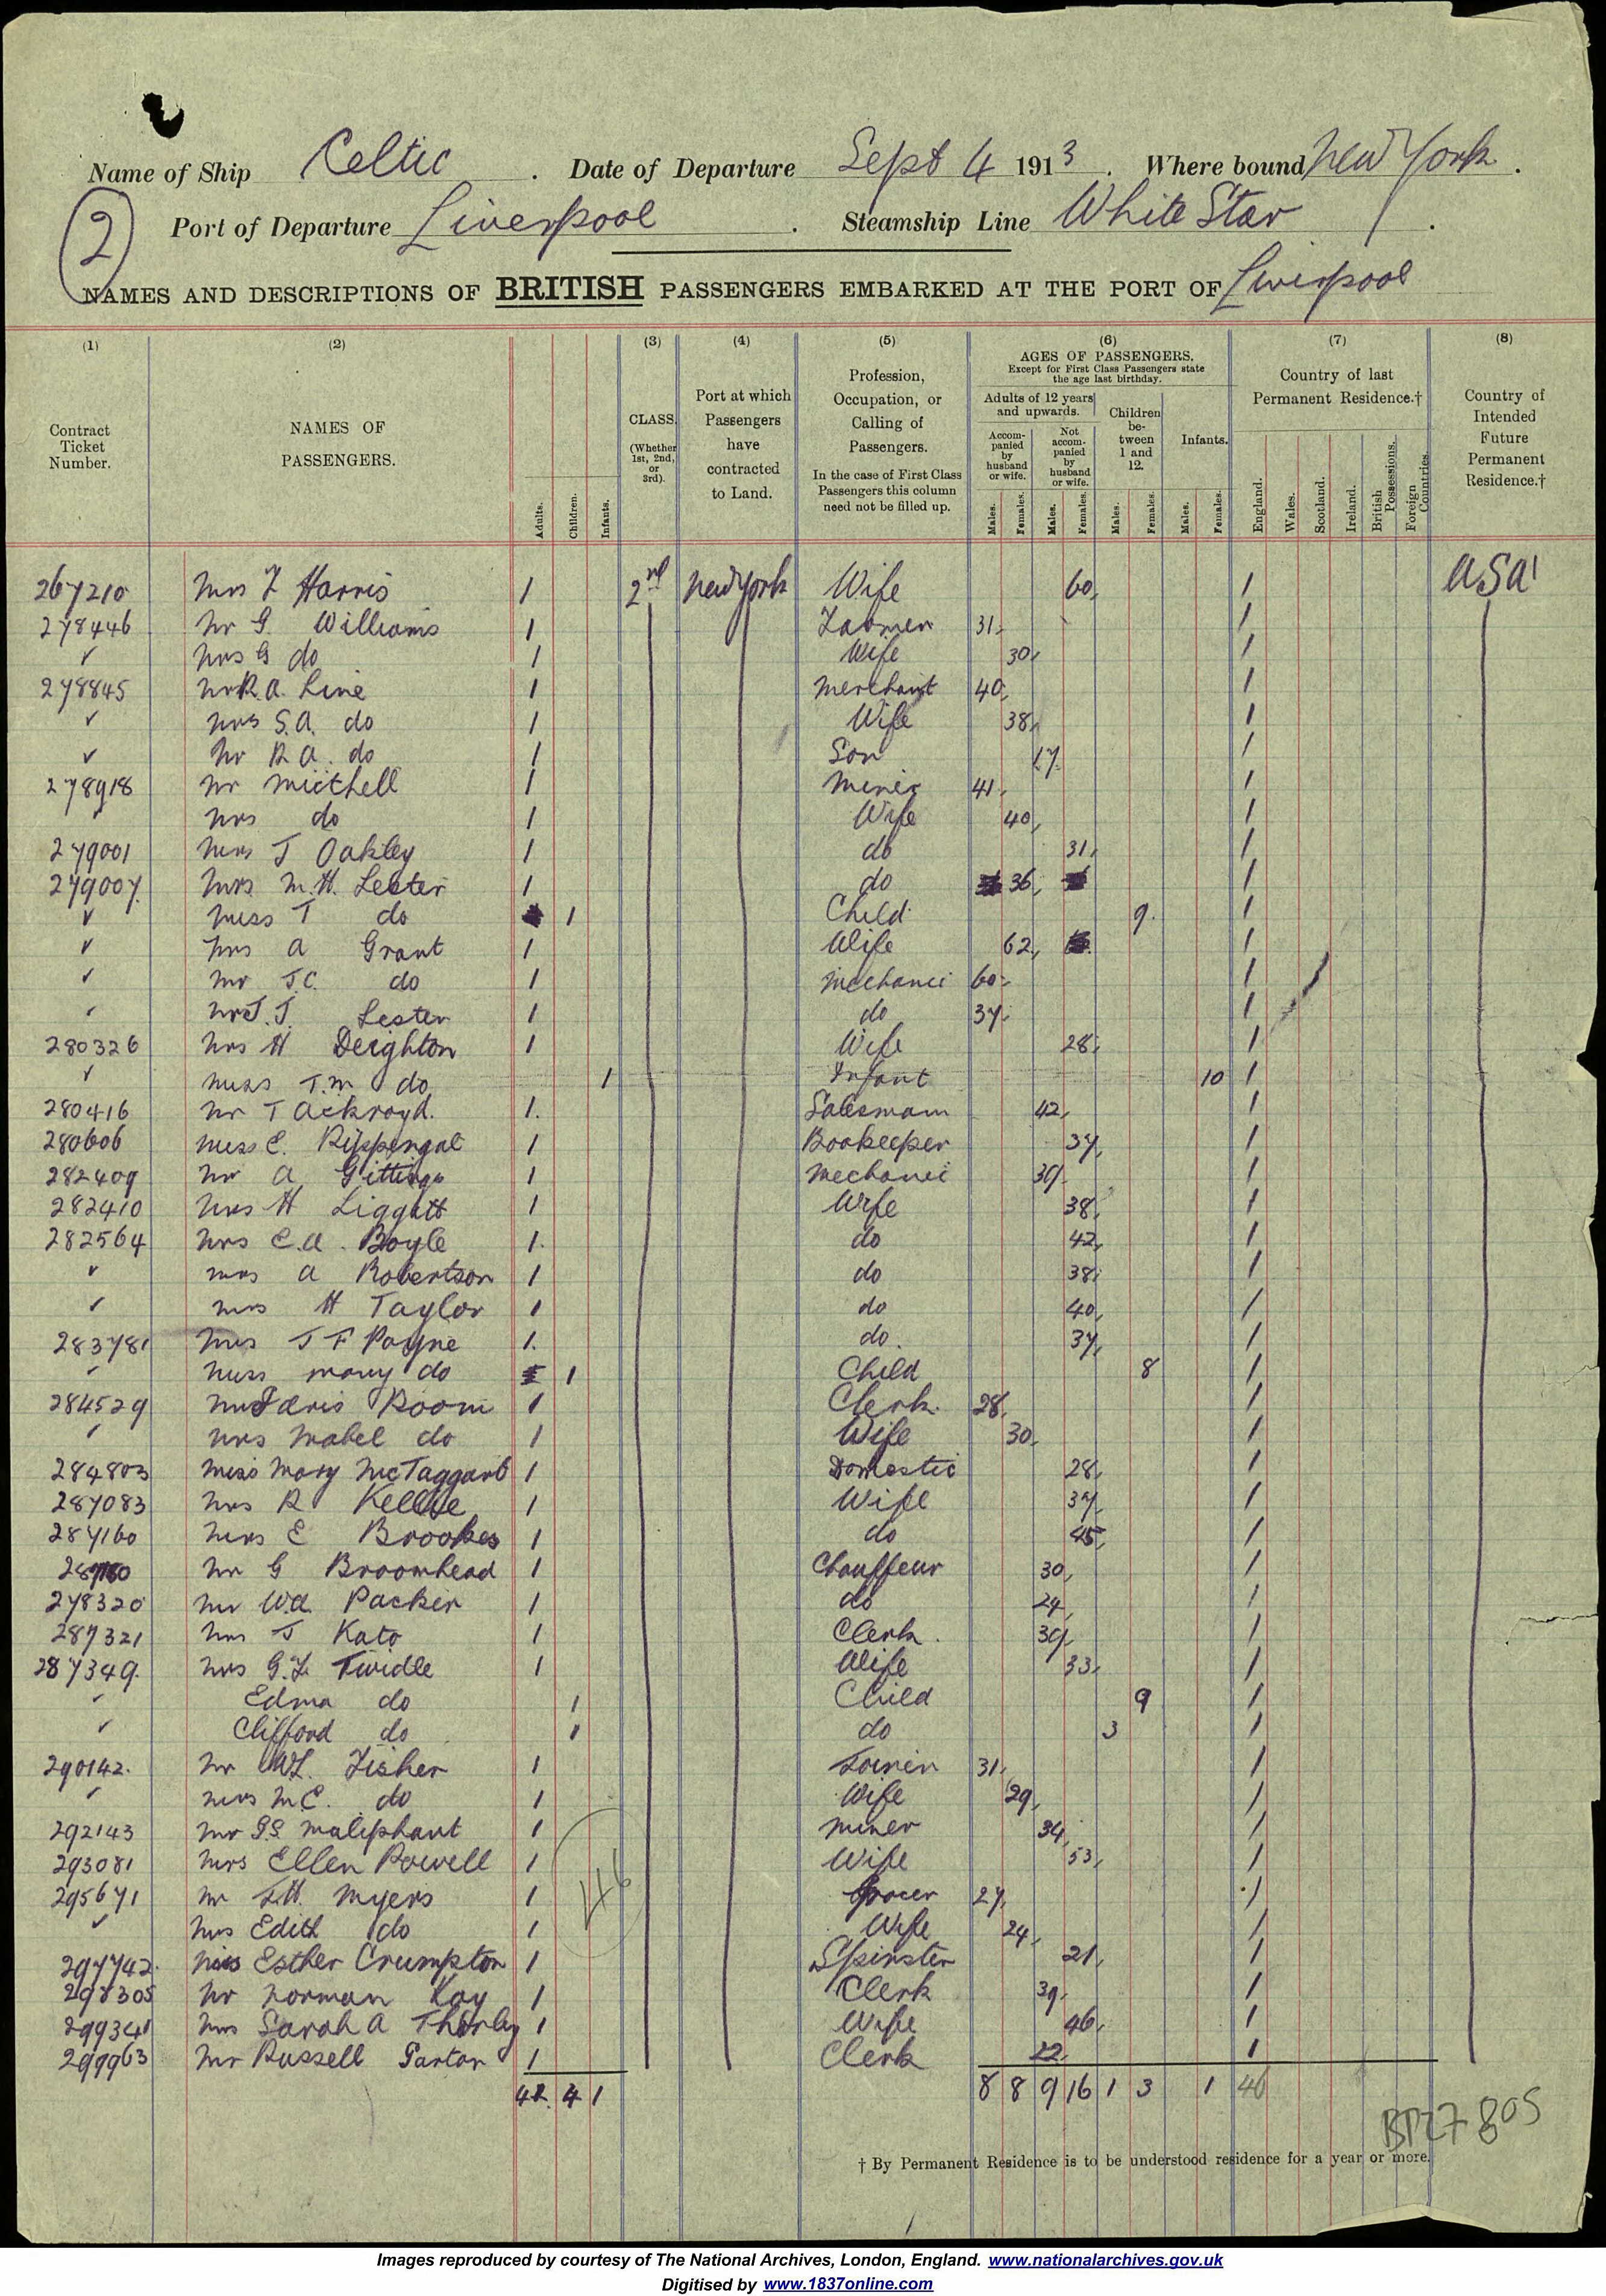 Name of Ship Celtic . Date of Departure Sept 4 1913 . Where bound New York .
(2) Port of Departure Liverpool . Steamship Line White Star .
NAMES AND DESCRIPTIONS OF BRITISH PASSENGERS EMBARKED AT THE PORT OF Liverpool
(1) (2) (3) (4) (5) (6) (7) (8)
Contract Ticket Number.
NAMES OF PASSENGERS.
Adults. Children. Infants.
CLASS. (Whether 1st, 2nd, or 3rd).
Port at which Passengers have contracted to Land.
Profession, Occupation, or Calling of Passengers.
In the case of First Class Passengers this column need not be filled up.
AGES OF PASSENGERS.
Except for First Class Passengers state the age last birthday.
Adults of 12 years and upwards.
Accompanied by husband or wife. Not accompanied by husband or wife. Children between 1 and 12. Infants.
Males. Females. Males. Females. Males. Females. Males. Females.
Country of last Permanent Residence.†
England. Wales. Scotland. Ireland. British Possessions. Foreign Countries.
Country of Intended Future Permanent Residence.†
267210 Mrs F Harris 1 2nd New York Wife 60 1 USA
278446 Mr G Williams 1 Farmer 31 1
✓ Mrs G do 1 Wife 30 1
278845 Mr R.A. Line 1 Merchant 40 1
✓ Mrs S.A. do 1 Wife 38 1
✓ Mr R A. do 1 Son 17 1
278918 Mr Mitchell 1 Miner 41 1
✓ Mrs do 1 Wife 40 1
279001 Mrs J Oakley 1 do 31 1
279007 Mrs M.H. Lester 1 do 36 1
✓ Miss T do 1 Child 9 1
✓ Mrs A Grant 1 Wife 62 1
✓ Mr J.C. do 1 Mechanic 60 1
✓ Mr J.J. Lester 1 do 37 1
280326 Mrs H Deighton 1 Wife 28 1
✓ Miss T.M do 1 Infant 10 1
280416 Mr T Ackroyd. 1 Salesmam 42 1
280606 Miss E. Rippengal 1 Bookeeper 37 1
282409 Mr A Gittings 1 Mechanic 39 1
282410 Mrs H Liggett 1 Wife 38 1
282564 Mrs E.A. Boyle 1 do 42 1
✓ Mrs A Robertson 1 do 38 1
✓ Mrs H Taylor 1 do 40 1
283781 Mrs J F Payne 1 do. 37 1
✓ Miss Mary do 1 Child 8 1
284529 Mr Idris Room 1 Clerk. 28 1
✓ Mrs Mabel do 1 Wife 30 1
284803 Miss Mary McTaggart 1 Domestic 28 1
287083 Mrs R Kellie 1 Wife 37 1
287160 Mrs E Brookes 1 do 45 1
Mr G Broomhead 1 Chauffeur 30 1
278320 Mr W.A. Packer 1 do 24 1
287321 Mr J Kato 1 Clerk. 39 1
287349 Mrs G.F. Twidle 1 Wife 33 1
✓ Edma do 1 Child 9 1
✓ Clifford do 1 do 3 1
290142. Mr W.L. Fisher 1 Joiner 31 1
✓ Mrs M.E. do 1 Wife 29 1
292143 Mr G.S. Maliphant 1 Miner 34 1
293081 Mrs Ellen Powell 1 Wife 53 1
295671 Mr F.H. Myers 1 Grocer 27 1
✓ Mrs Edith do 1 Wife 24 1
297742. Miss Esther Crumpton 1 Spinster 21 1
298305 Mr Norman Kay 1 Clerk 39 1
299341 Mrs Sarah A Thorley 1 Wife 46 1
299963 Mr Russell Sartor 1 Clerk 22 1
46
42 4 1 8 8 9 16 1 3 1 46
BT27 805
† By Permanent Residence is to be understood residence for a year or more.
Images reproduced by courtesy of The National Archives, London, England. www.nationalarchives.gov.uk
Digitised by www.1837online.com